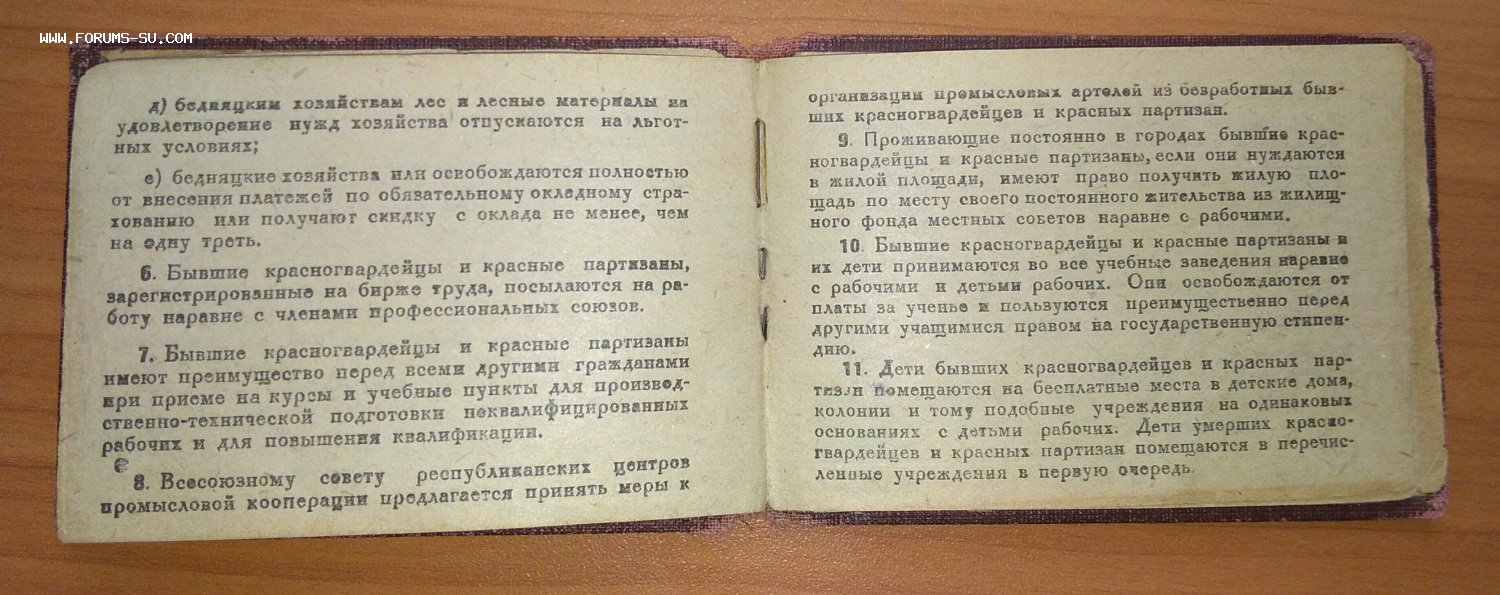 WWW.FORUMS-SU.COM
д) бедняцким хозяйствам лес и лесные материалы на
удовлетворение нужд хозяйства отпускаются на льгот-
ных условиях;
е) бедняцкие хозяйства или освобождаются полностью
от внесения платежей по обязательному окладному стра-
хованию или получают скидку с оклада не менее, чем
на одну треть.
6. Бывшие красногвардейцы и красные партизаны,
зарегистрированные на бирже труда, посылаются на ра-
боту наравне с членами профессиональных союзов.
7. Бывшие красногвардейцы и красные партизаны
имеют преимущество перед всеми другими гражданами
при приеме на курсы и учебные пункты для производ-
ственно-технической подготовки неквалифицированных
рабочих и для повышения квалификации.
8. Всесоюзному совету республиканских центров
промысловой кооперации предлагается принять меры к
организации промысловых артелей из безработных быв-
ших красногвардейцев и красных партизан.
9. Проживающие постоянно в городах бывшие крас-
ногвардейцы и красные партизаны, если они нуждаются
в жилой площади, имеют право получить жилую пло-
щадь по месту своего постоянного жительства из жилищ-
ного фонда местных советов наравне с рабочими.
10. Бывшие красногвардейцы и красные партизаны и
их дети принимаются во все учебные заведения наравне
с рабочими и детьми рабочих. Они освобождаются от
платы за ученье и пользуются преимущественно перед
другими учащимися правом на государственную стипен-
дию.
11. Дети бывших красногвардейцев и красных пар-
тизан помещаются на бесплатные места в детские дома,
колонии и тому подобные учреждения на одинаковых
основаниях с детьми рабочих. Дети умерших красно-
гвардейцев и красных партизан помещаются в перечис-
ленные учреждения в первую очередь.